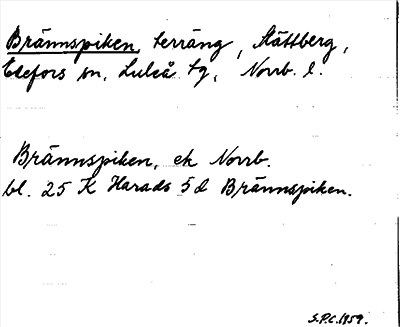 Brännspiken, terräng, Slättberg,
Edefors sn, Luleå tg, Norrb. l.
Brännspiken, ek Norrb.
bl. 25 K Harads 5 d Brännspiken.
S.P.C. 1959.